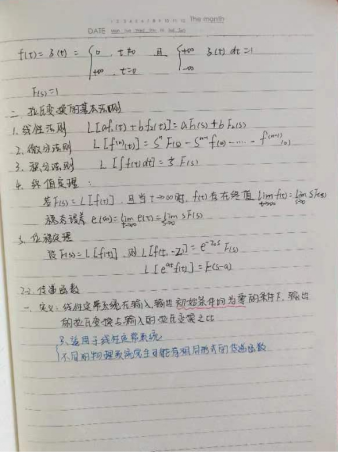 DATE
f(t)=δ(t)= { 0 , t≠0 且 ∫ +∞ -∞ δ(t) dt=1
+∞ , t=0
F(s)=1
二 拉氏变换的基本法则
1. 线性法则 L[af₁(t)+bf₂(t)]=aF₁(s)+bF₂(s)
2. 微分法则 L[f⁽ⁿ⁾(t)]=SⁿF(s)-Sⁿ⁻¹f(0)-…-f⁽ⁿ⁻¹⁾(0)
3. 积分法则 L[∫f(t)dt]=1/S F(s)
4. 终值定理:
若F(s)=L[f(t)], 且当t→∞时, f(t)存在终值 lim f(t)=lim SF(s)
稳态误差 e(∞)=lim e(t)=lim SF(s)
5. 位移定理
设F(s)=L[f(t)], 则 L[f(t-τ)]=e F(s)
L[eᵃᵗf(t)]=F(s-a)
2.2 传递函数
一 定义: 线性定常系统在输入、输出初始条件均为零的条件下, 输出
的拉氏变换与输入的拉氏变换之比
只适用于线性定常系统
不同的物理系统完全可能有相同形式的传递函数